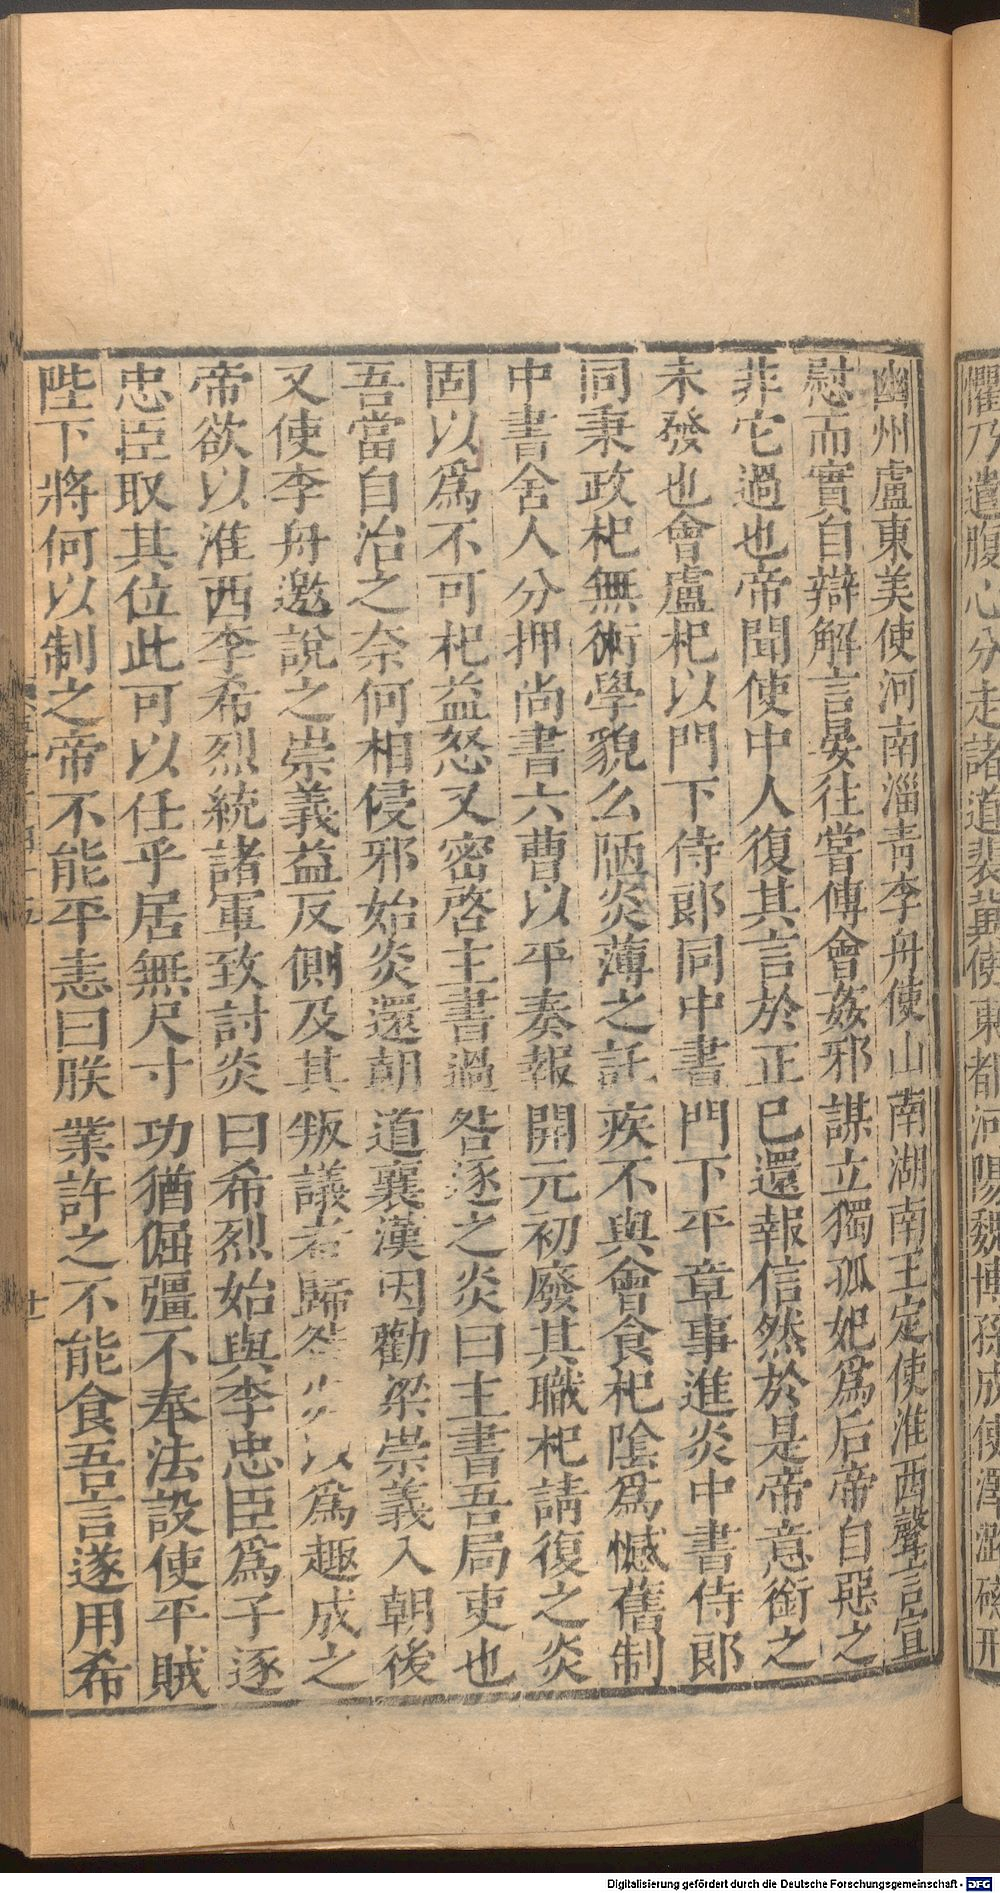 懼乃遣腹心分走諸道裴冀使東都河陽魏博孫成使澤潞磁邢
幽州盧東美使河南淄青李舟使山南湖南王定使淮西聲言宣
慰而實自辯解言晏往嘗傅會姦邪謀立獨孤妃爲后帝自惡之
非它過也帝聞使中人復其言於正巳還報信然於是帝意銜之
未發也會盧杞以門下侍郎同中書門下平章事進炎中書侍郎
同秉政杞無術學貌么陋炎薄之託疾不與會食杞陰爲憾舊制
中書舍人分押尚書六曹以平奏報開元初廢其職杞請復之炎
固以爲不可杞益怒又密啓主書過咎逐之炎曰主書吾局吏也
吾當自治之奈何相侵邪始炎還朝道襄漢因勸梁崇義入朝後
又使李舟邀說之崇義益反側及其叛議者歸咎以爲趣成之
帝欲以淮西李希烈統諸軍致討炎曰希烈始與李忠臣爲子逐
忠臣取其位此可以任乎居無尺寸功猶倔彊不奉法設使平賊
陛下將何以制之帝不能平恚曰朕業許之不能食吾言遂用希
十一
Digitalisierung gefördert durch die Deutsche Forschungsgemeinschaft - DFG